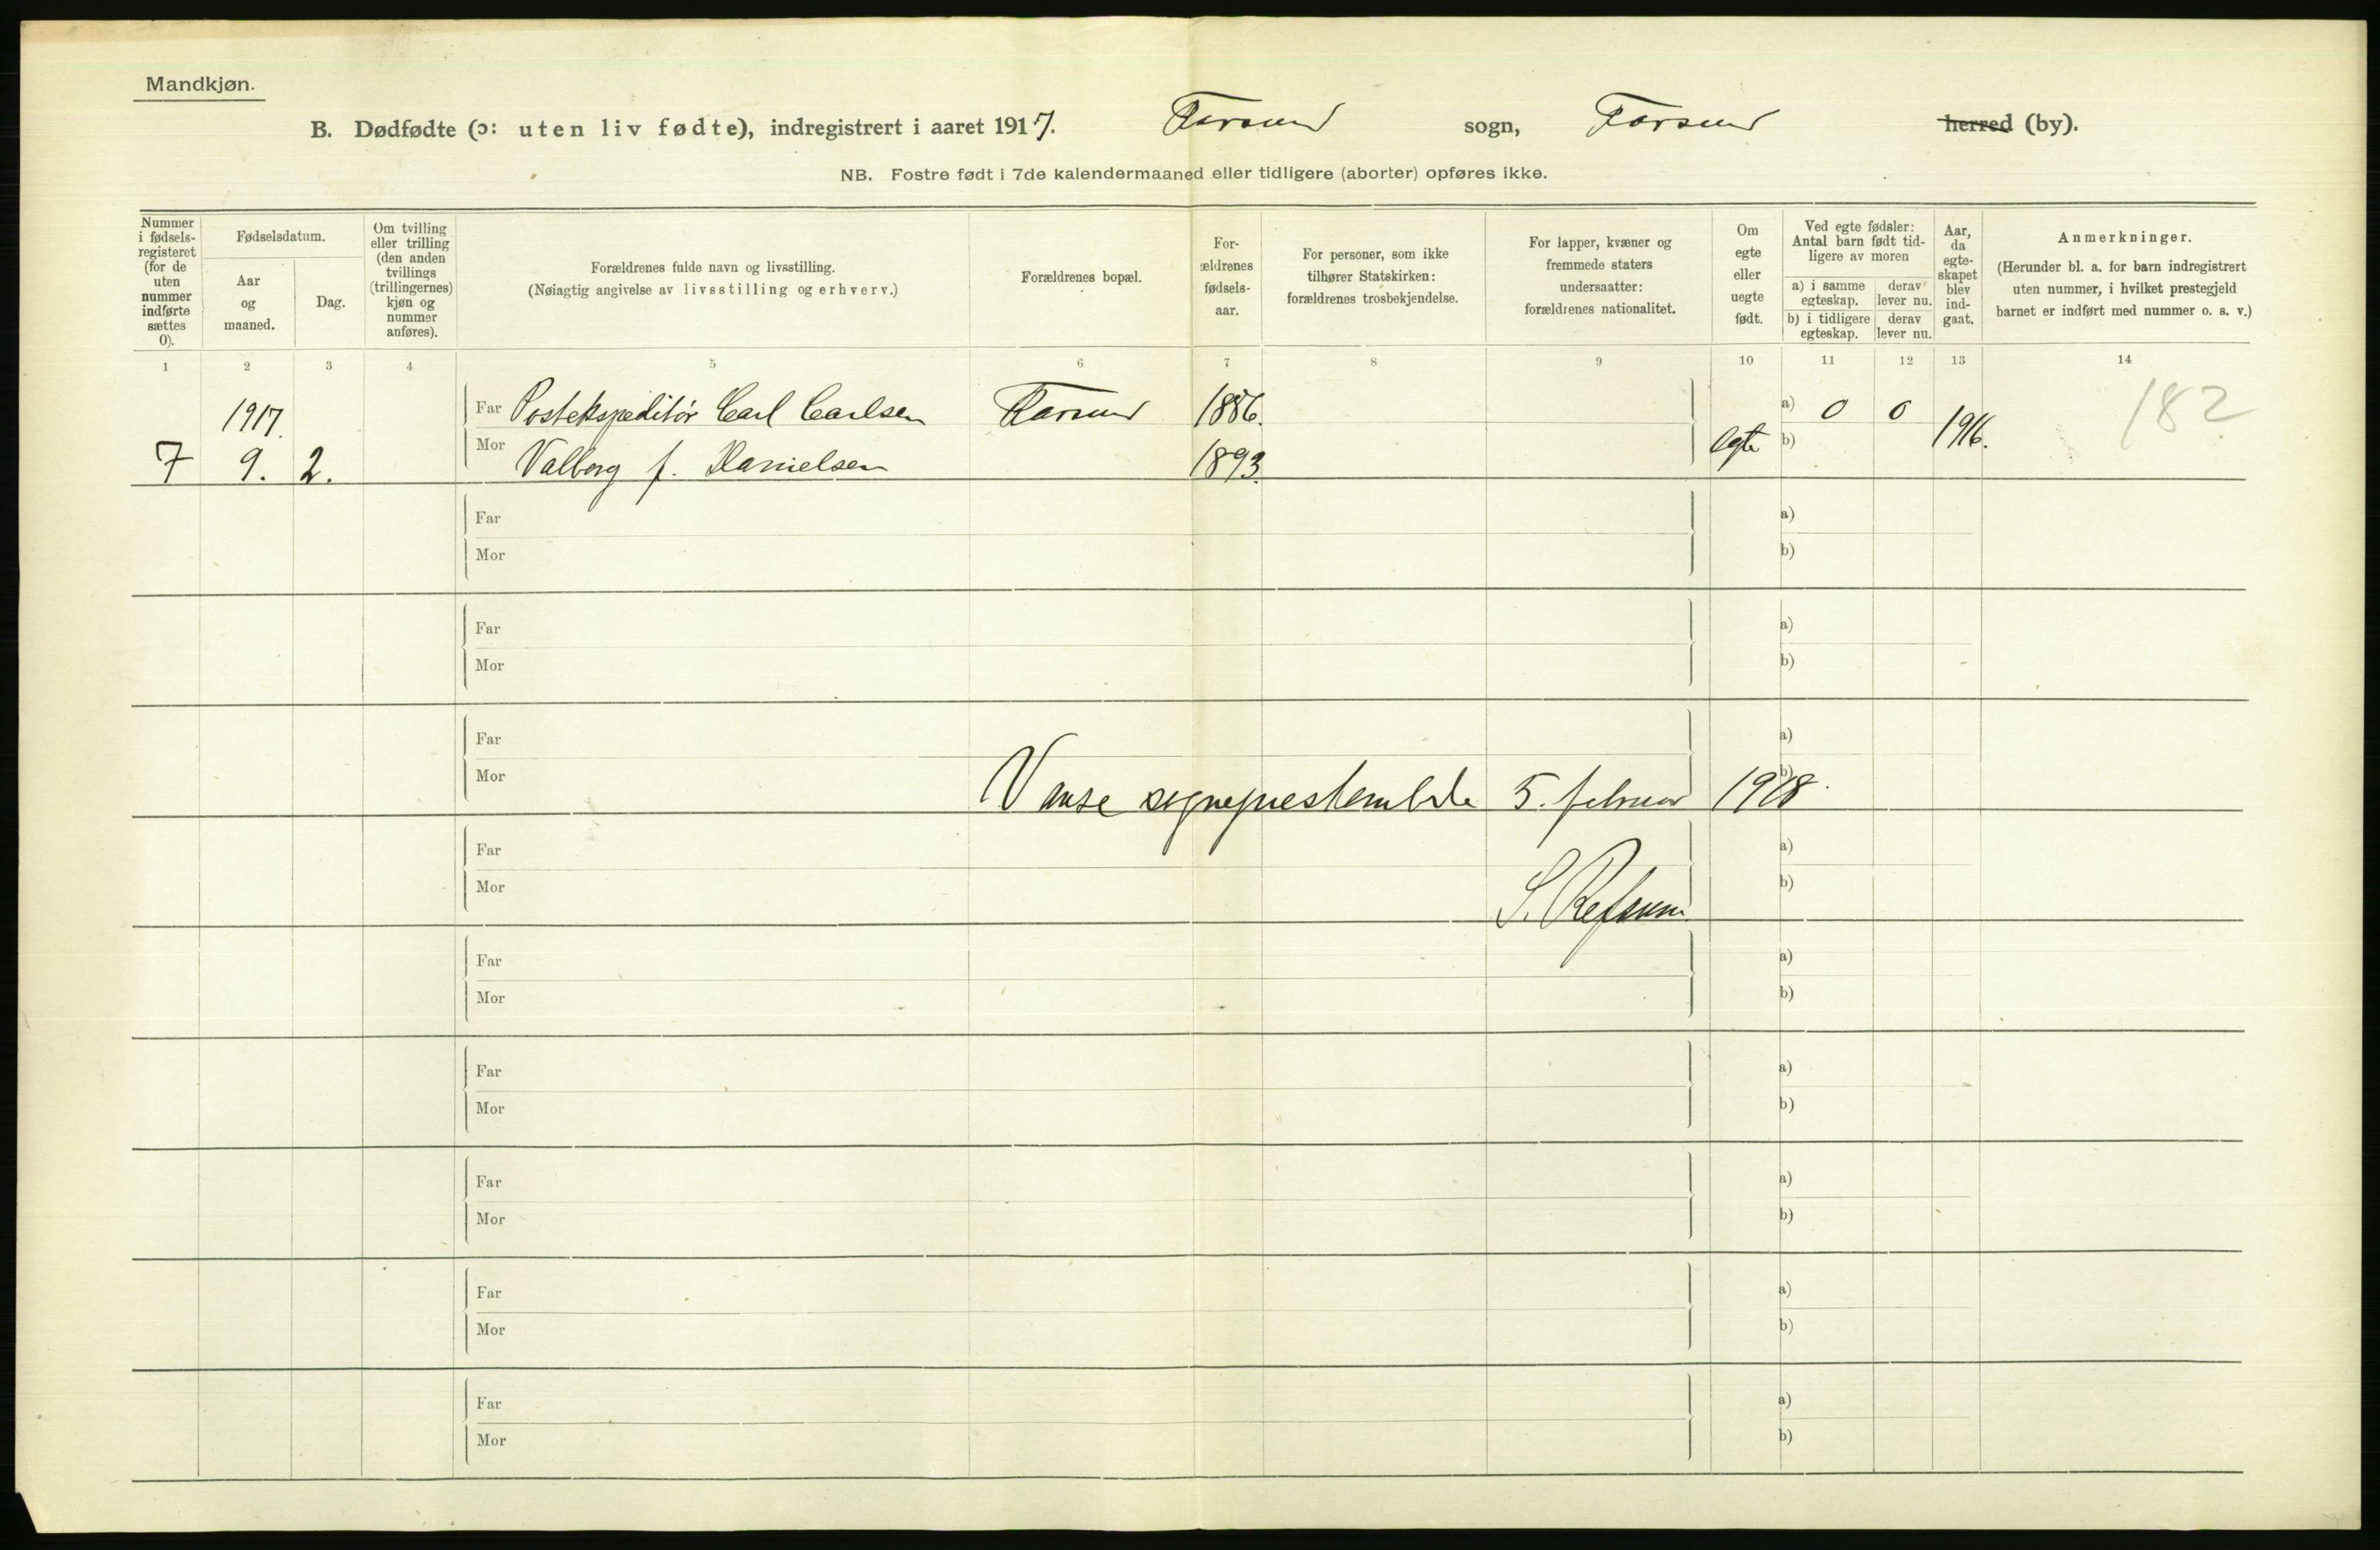 Mandkjøn.
B. Dødfødte (ɔ: uten liv fødte), indregistrert i aaret 1917. Farsund sogn, Farsund herred (by).
NB. Fostre født i 7de kalendermaaned eller tidligere (aborter) opføres ikke.
Nummer i fødsels-registeret (for de uten nummer indførte sættes 0).
Fødselsdatum.
Aar og maaned.
Dag.
Om tvilling eller trilling (den anden tvillings (trillingernes) kjøn og nummer anføres).
Forældrenes fulde navn og livsstilling.
(Nøiagtig angivelse av livsstilling og erhverv.)
Forældrenes bopæl.
For-ældrenes fødsels-aar.
For personer, som ikke tilhører Statskirken: forældrenes trosbekjendelse.
For lapper, kvæner og fremmede staters undersaatter: forældrenes nationalitet.
Om egte eller uegte født.
Ved egte fødsler: Antal barn født tid-ligere av moren
a) i samme egteskap. derav lever nu.
b) i tidligere egteskap. derav lever nu.
Aar, da egte-skapet blev ind-gaat.
Anmerkninger.
(Herunder bl. a. for barn indregistrert uten nummer, i hvilket prestegjeld barnet er indført med nummer o. s. v.)
1 2 3 4 5 6 7 8 9 10 11 12 13 14
1917. Far Postekspeditør Carl Carlsen Farsund 1886. a) 0 0 182
7 9. 2. Mor Valborg f. Danielsen 1893. Egte b) 1916.
Far a)
Mor b)
Far a)
Mor b)
Far a)
Mor Vanse sogneprestembede 5. februar 1918. b)
Far a)
Mor b)
S. Refsum
Far a)
Mor b)
Far a)
Mor b)
Far a)
Mor b)
Far a)
Mor b)
Far a)
Mor b)